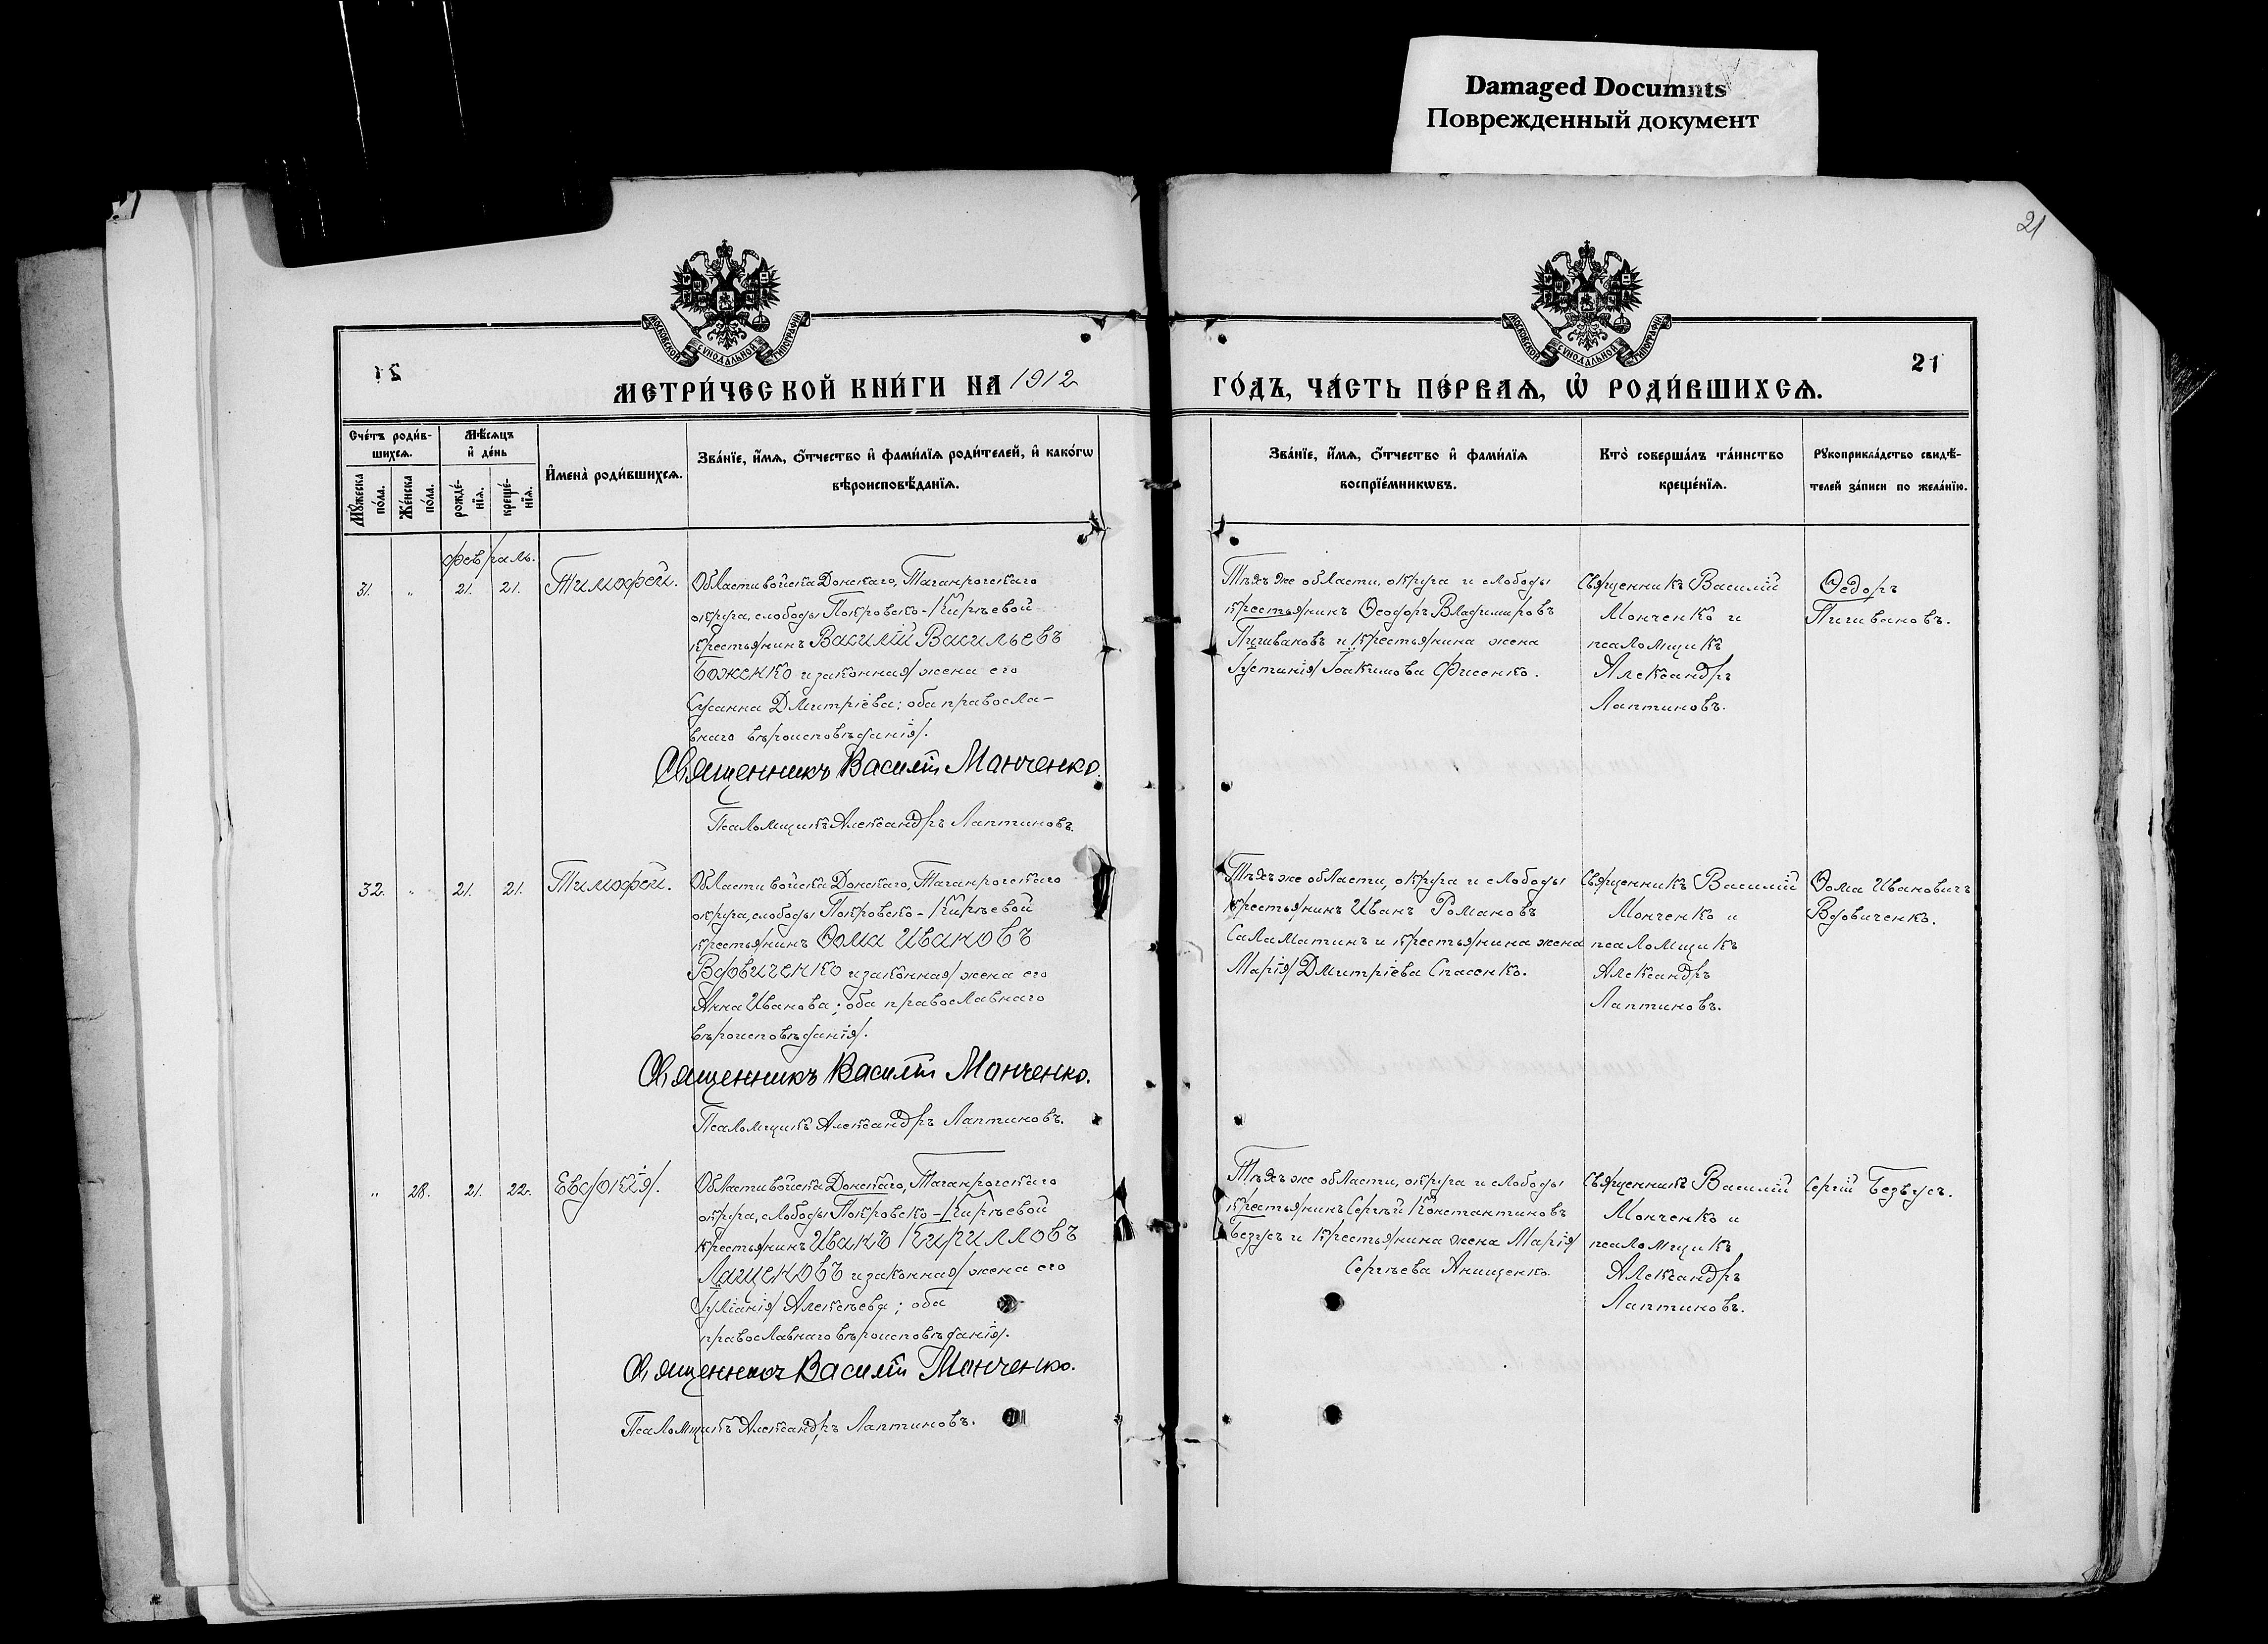 Damaged Documnts
Поврежденный документ
21
МОСКОВСКОЙ СѴНОДАЛЬНОЙ ТИПОГРАФІИ
МОСКОВСКОЙ СѴНОДАЛЬНОЙ ТИПОГРАФІИ
21
21
МЕТРИ́ЧЕСКОЙ КНИ́ГИ НА 1912
ГО́ДЪ, ЧА́СТЬ ПЕ́РВАѦ, Ѡ҆ РОДИ́ВШИХСѦ.
Сче́тъ роди́в-
шихсѧ.
Мѣ́сѧцъ
и҆ де́нь
Мꙋ́жеска
по́ла.
Же́нска
по́ла.
рожде́-
нїѧ.
креще́-
нїѧ.
И҆мена̀ роди́вшихсѧ.
Зва́нїе, и҆́мѧ, ѻ҆́тчество и҆ фами́лїѧ роди́телей, и҆ како́гѡ
вѣроисповѣ́данїѧ.
Зва́нїе, и҆́мѧ, ѻ҆́тчество и҆ фами́лїѧ
воспрїе́мникѡвъ.
Кто̀ соверша́лъ та́инство
креще́нїѧ.
Рꙋкоприкла́дство свидѣ́-
телей за́писи по жела́нїю.
февраль.
31. " 21. 21. Тимофей.
Области войска Донскаго, Таганрогскаго
округа, слободы Покровско-Кирѣевой
крестьянинъ Василій Васильевъ
Боженко и законная жена его
Сусанна Дмитріева; оба правосла-
внаго вѣроисповѣданія.
Священникъ Василій Манченко.
Псаломщикъ Александръ Лаптиновъ.
Тѣхъ же области, округа и слободы
крестьянинъ Ѳеодоръ Владиміровъ
Пишвановъ и крестьянина жена
Іустинія Іоакимова Фисенко.
Священникъ Василій
Манченко и
псаломщикъ
Александръ
Лаптиновъ.
Ѳедоръ
Пишвановъ.
32. " 21. 21. Тимофей.
Области войска Донскаго, Таганрогскаго
округа, слободы Покровско-Кирѣевой
крестьянинъ Ѳома Ивановъ
Вдовиченко и законная жена его
Анна Иванова; оба православнаго
вѣроисповѣданія.
Священникъ Василій Манченко.
Псаломщикъ Александръ Лаптиновъ.
Тѣхъ же области, округа и слободы
крестьянинъ Иванъ Романовъ
Саламатинъ и крестьянина жена
Марія Дмитріева Спасенко.
Священникъ Василій
Манченко и
псаломщикъ
Александръ
Лаптиновъ.
Ѳома Ивановичъ
Вдовиченко.
" 28. 21. 22. Евдокія.
Области войска Донскаго, Таганрогскаго
округа, слободы Покровско-Кирѣевой
крестьянинъ Иванъ Кирилловъ
Лащеновъ и законная жена его
Іуліанія Алексѣева; оба
православнаго вѣроисповѣданія.
Священникъ Василій Манченко.
Псаломщикъ Александръ Лаптиновъ.
Тѣхъ же области, округа и слободы
крестьянинъ Сергѣй Константиновъ
Безусъ и крестьянина жена Марія
Сергѣева Анищенко.
Священникъ Василій
Манченко и
псаломщикъ
Александръ
Лаптиновъ.
Сергій Безъусъ.